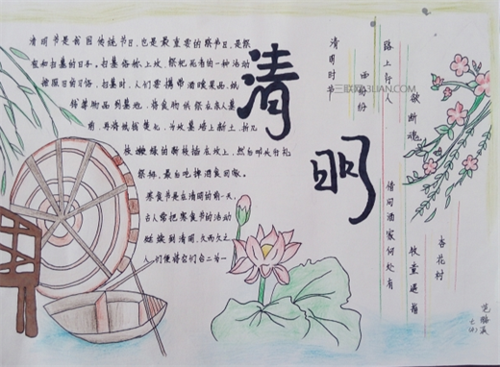 清明节是我国传统节日,也是最重要的祭节日,是祭
祖和扫墓的日子。扫墓俗称上坟,祭祀死者的一种活动
按照旧的习俗,扫墓时,人们要携带酒食果品,纸
钱等物品到墓地,将食物供祭在亲人墓
前,再将纸钱焚化,为坟墓培上新土,折几
枝嫩绿的新枝插在坟上,然后叩头行礼
祭拜,最后吃掉酒食回家。
寒食节是在清明的前一天,
古人常把寒食节的活动
延续到清明,久而久之
人们便将它们合二为一
清明
清明时节
雨纷纷
路上行人
欲断魂
借问酒家何处有
牧童遥指
杏花村
3LIAN.COM